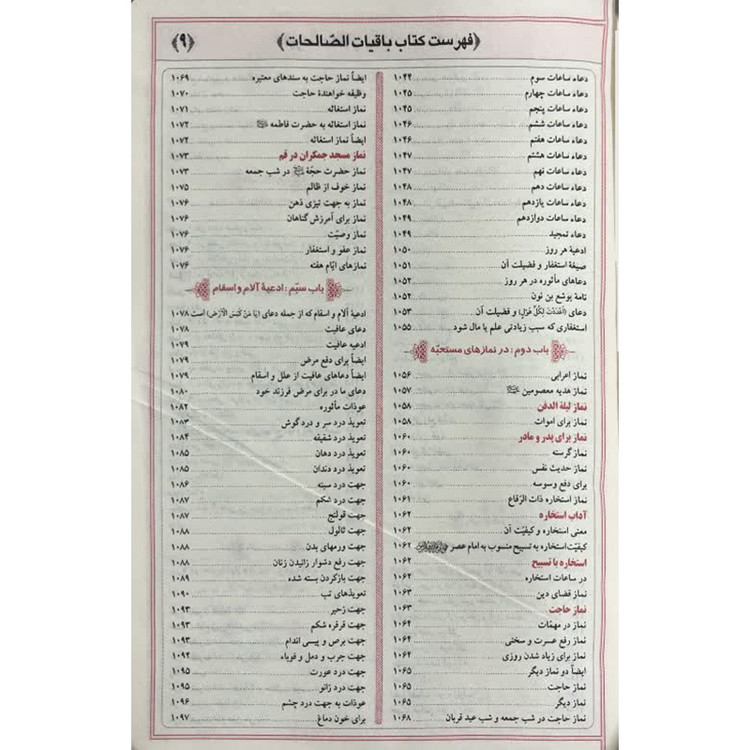 ﴿فهرست کتاب باقیات الصّالحات﴾
﴿۹﴾
دعاء ساعات سوم ۱۰۴۴
دعاء ساعات چهارم ۱۰۴۵
دعاء ساعات پنجم ۱۰۴۵
دعاء ساعات ششم ۱۰۴۶
دعاء ساعات هفتم ۱۰۴۶
دعاء ساعات هشتم ۱۰۴۷
دعاء ساعات نهم ۱۰۴۷
دعاء ساعات دهم ۱۰۴۸
دعاء ساعات یازدهم ۱۰۴۸
دعاء ساعات دوازدهم ۱۰۴۹
دعاء تمجید ۱۰۴۹
ادعیهٔ هر روز ۱۰۵۰
صیغهٔ استغفار و فضیلت آن ۱۰۵۱
دعاهای مأثوره در هر روز ۱۰۵۲
نامهٔ یوشع بن نون ۱۰۵۲
دعای (أعْدَدْتُ لِكُلِّ هَوْلٍ) و فضیلت آن ۱۰۵۳
استغفاری که سبب زیادتی علم یا مال شود ۱۰۵۵
باب دوم : در نمازهای مستحبّه
نماز اعرابی ۱۰۵۶
نماز هدیه معصومین ۱۰۵۷
نماز لیلة الدفن ۱۰۵۸
نماز برای اموات ۱۰۵۸
نماز برای پدر و مادر ۱۰۶۰
نماز گرسنه ۱۰۶۰
نماز حدیث نفس ۱۰۶۰
برای دفع وسوسه ۱۰۶۰
نماز استخاره ذات الرّقاع ۱۰۶۱
آداب استخاره ۱۰۶۲
معنی استخاره و کیفیّت آن ۱۰۶۲
کیفیّت استخاره به تسبیح منسوب به امام عصر ۱۰۶۲
استخاره با تسبیح ۱۰۶۲
در ساعات استخاره ۱۰۶۲
نماز قضای دین ۱۰۶۳
نماز حاجت ۱۰۶۳
نماز در مهمّات ۱۰۶۴
نماز رفع عسرت و سختی ۱۰۶۴
نماز برای زیاد شدن روزی ۱۰۶۴
ایضاً دو نماز دیگر ۱۰۶۵
نماز حاجت ۱۰۶۵
نماز دیگر ۱۰۶۵
نماز حاجت در شب جمعه و شب عید قربان ۱۰۶۸
ایضاً نماز حاجت به سندهای معتبره ۱۰۶۹
وظیفه خواهندهٔ حاجت ۱۰۷۰
نماز استغاثه ۱۰۷۱
نماز استغاثه به حضرت فاطمه ۱۰۷۲
ایضاً نماز استغاثه ۱۰۷۲
نماز مسجد جمکران در قم ۱۰۷۳
نماز حضرت حجّة در شب جمعه ۱۰۷۳
نماز خوف از ظالم ۱۰۷۵
نماز به جهت تیزی ذهن ۱۰۷۶
نماز برای آمرزش گناهان ۱۰۷۶
نماز وصیّت ۱۰۷۶
نماز عفو و استغفار ۱۰۷۶
نمازهای ایّام هفته ۱۰۷۶
باب سیّم : ادعیهٔ آلام و اسقام
ادعیهٔ آلام و اسقام که از جمله دعای (یَا مَنْ كَبَسَ الْأَرْضَ) است ۱۰۷۸
دعای عافیت ۱۰۷۸
ادعیه عافیت ۱۰۷۹
ایضاً برای دفع مرض ۱۰۷۹
ایضاً دعاهای عافیت از علل و اسقام ۱۰۷۹
دعای ما در برای مرض فرزند خود ۱۰۸۰
عوذات مأثوره ۱۰۸۲
تعویذ درد سر و درد گوش ۱۰۸۳
تعویذ درد شقیقه ۱۰۸۴
تعویذ درد دهان ۱۰۸۵
تعویذ درد دندان ۱۰۸۵
جهت درد سینه ۱۰۸۶
جهت درد شکم ۱۰۸۷
جهت قولنج ۱۰۸۷
جهت ثالول ۱۰۸۸
جهت ورمهای بدن ۱۰۸۸
جهت رفع دشوار زائیدن زنان ۱۰۸۸
جهت بازکردن بسته شده ۱۰۸۹
تعویذهای تب ۱۰۹۰
جهت زحیر ۱۰۹۳
جهت قرقره شکم ۱۰۹۳
جهت برص و پیسی اندام ۱۰۹۳
جهت جرب و دمل و قوباء ۱۰۹۴
جهت درد عورت ۱۰۹۵
جهت درد زانو ۱۰۹۵
عوذات به جهت درد چشم ۱۰۹۶
برای خون دماغ ۱۰۹۷